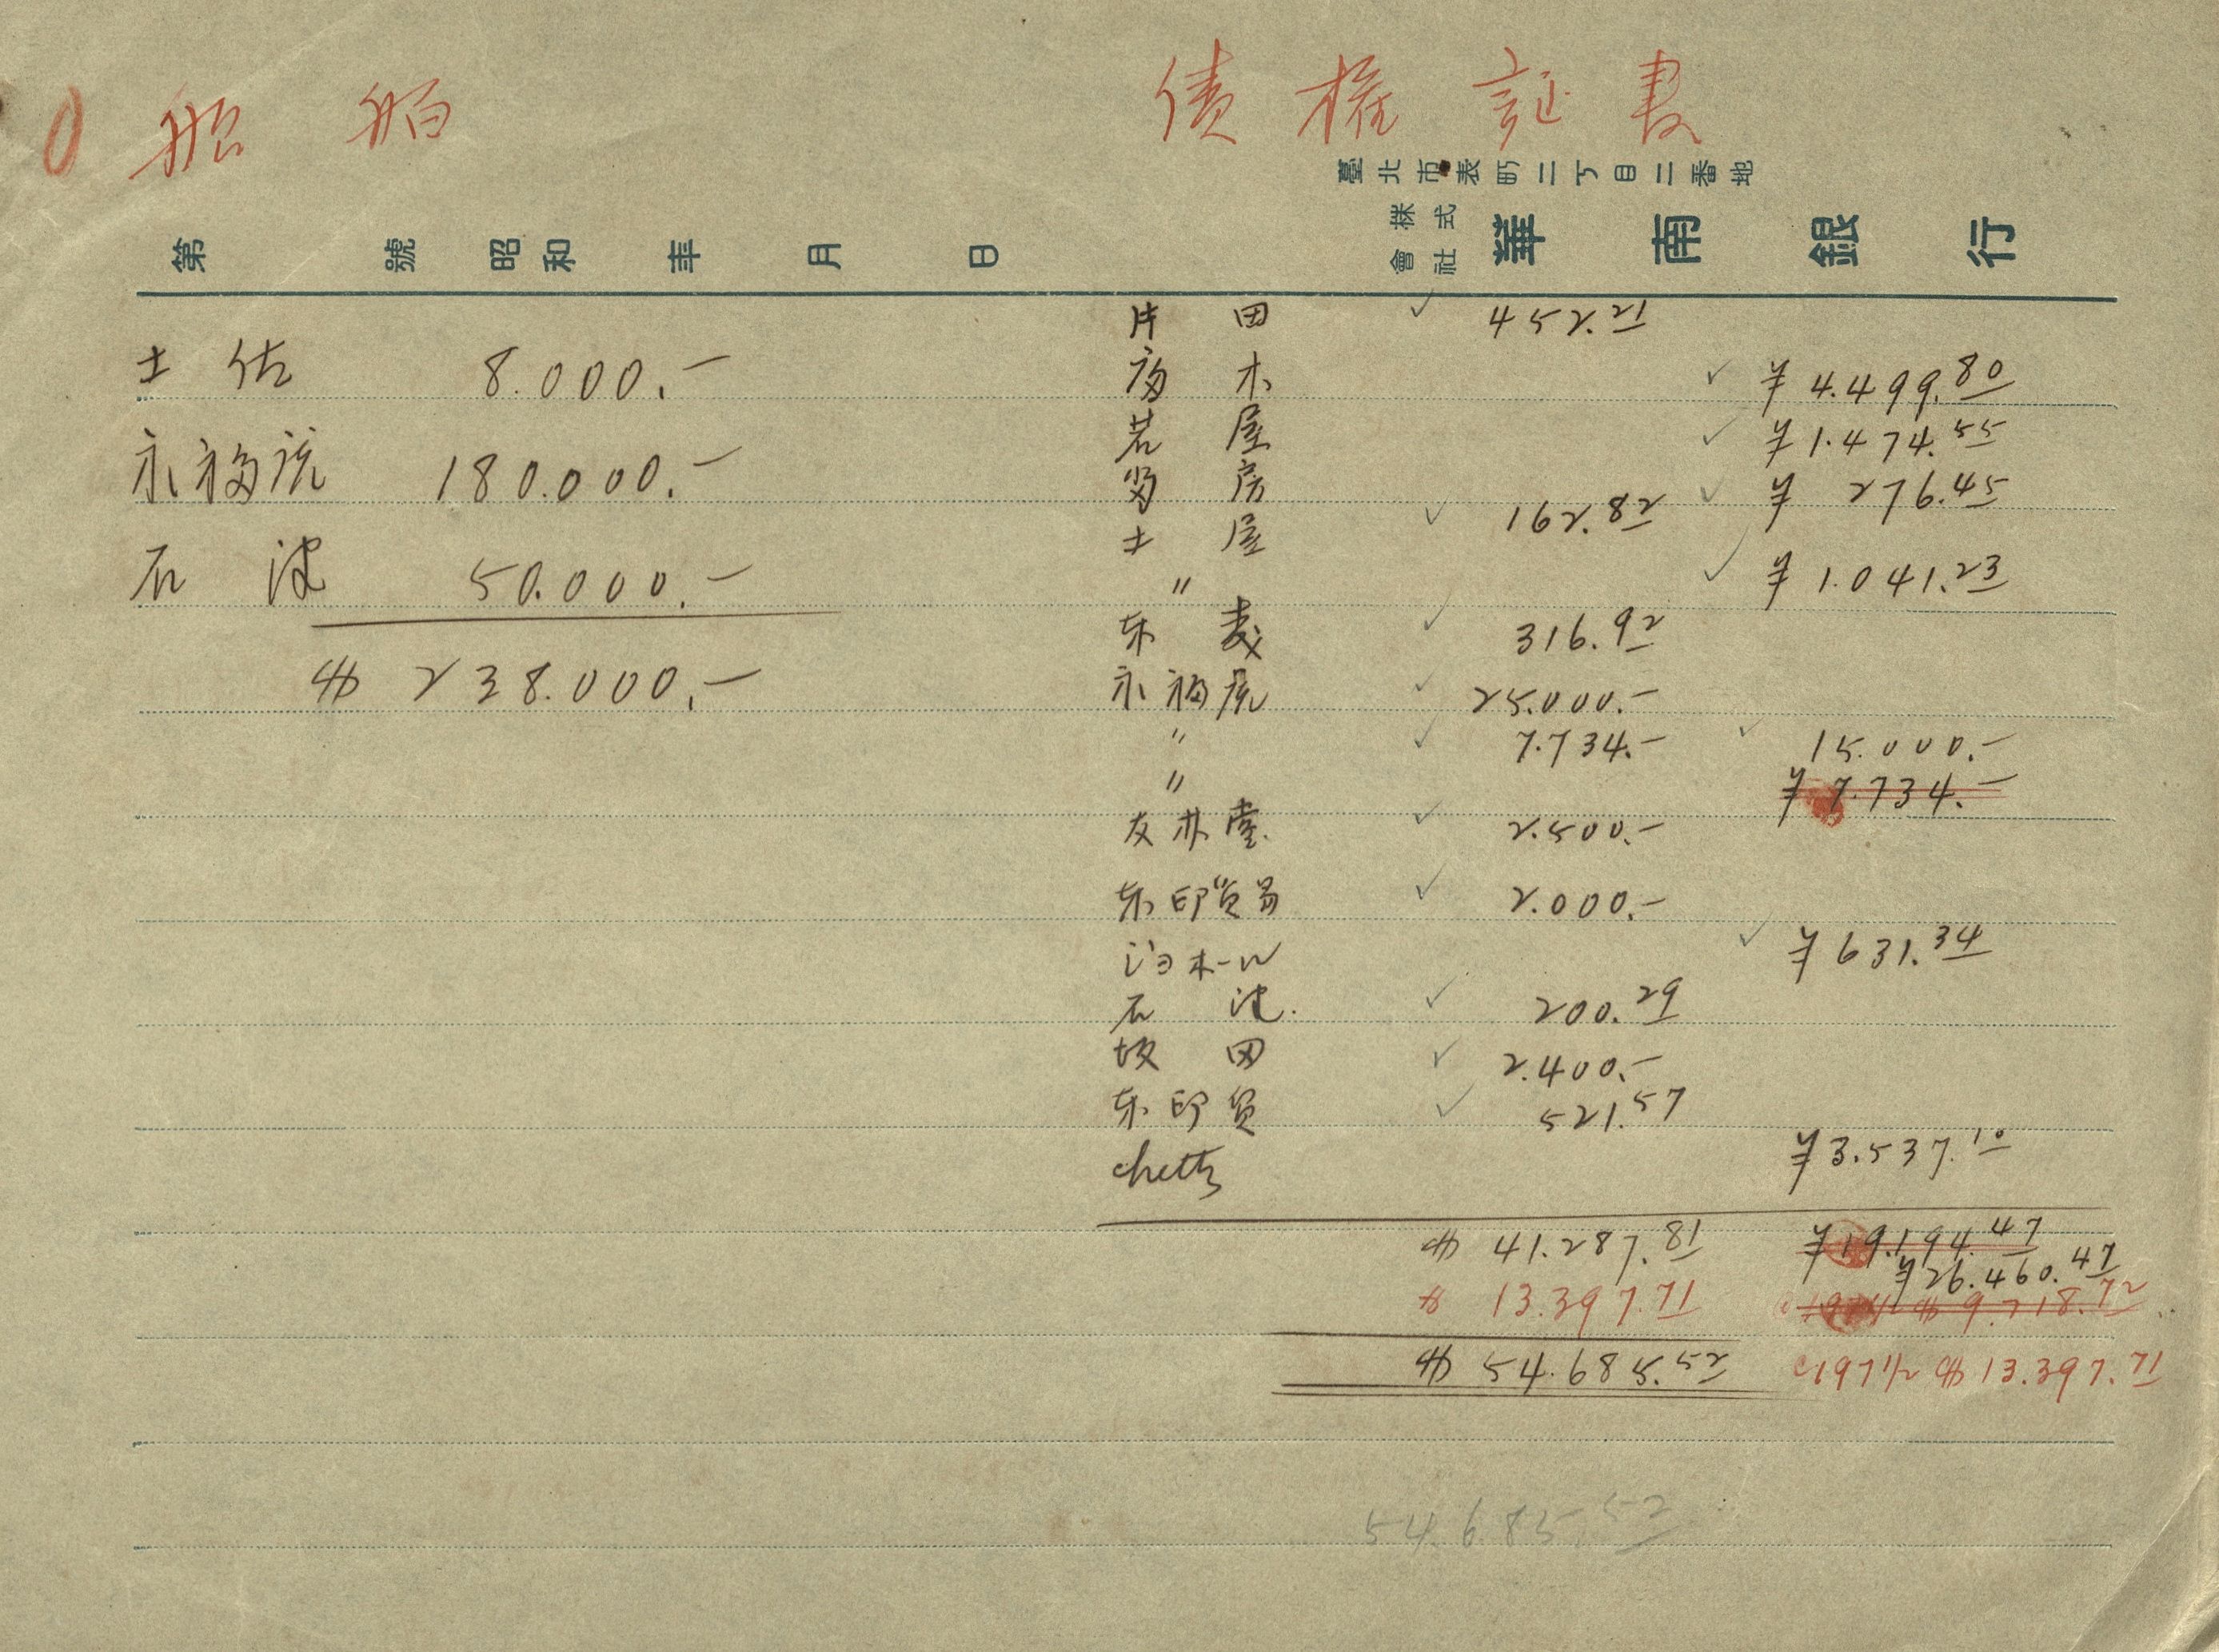 船舶 債権証書
臺北市表町二丁目二番地
第 號 昭和 年 月 日 株式會社 華南銀行
土佐 8.000.–
永福流 180.000.–
石波 50.000.–
$ 238.000.–
片田 ✓ 452.21
木 ✓ ¥4.499.80
若屋 ✓ ¥1.474.55
房 ✓ ¥276.45
土屋 ✓ 162.82
" ✓ ¥1.041.23
东 ✓ 316.92
永福流 ✓ 25.000.–
" ✓ 7.734.– ✓ 15.000.–
" ¥7.734.–
友 堂 ✓ 2.500.–
东印貿易 ✓ 2.000.–
ホール ✓ ¥631.34
石波 ✓ 200.29
坂田 ✓ 2.400.–
东印貿 ✓ 521.57
chetty ¥3.537.10
$ 41.287.81 ¥19.194.47
¥26.460.47
$ 13.397.71 $ 9.718.72
$ 54.685.52 @197 1/2 $ 13.397.71
54.685.52